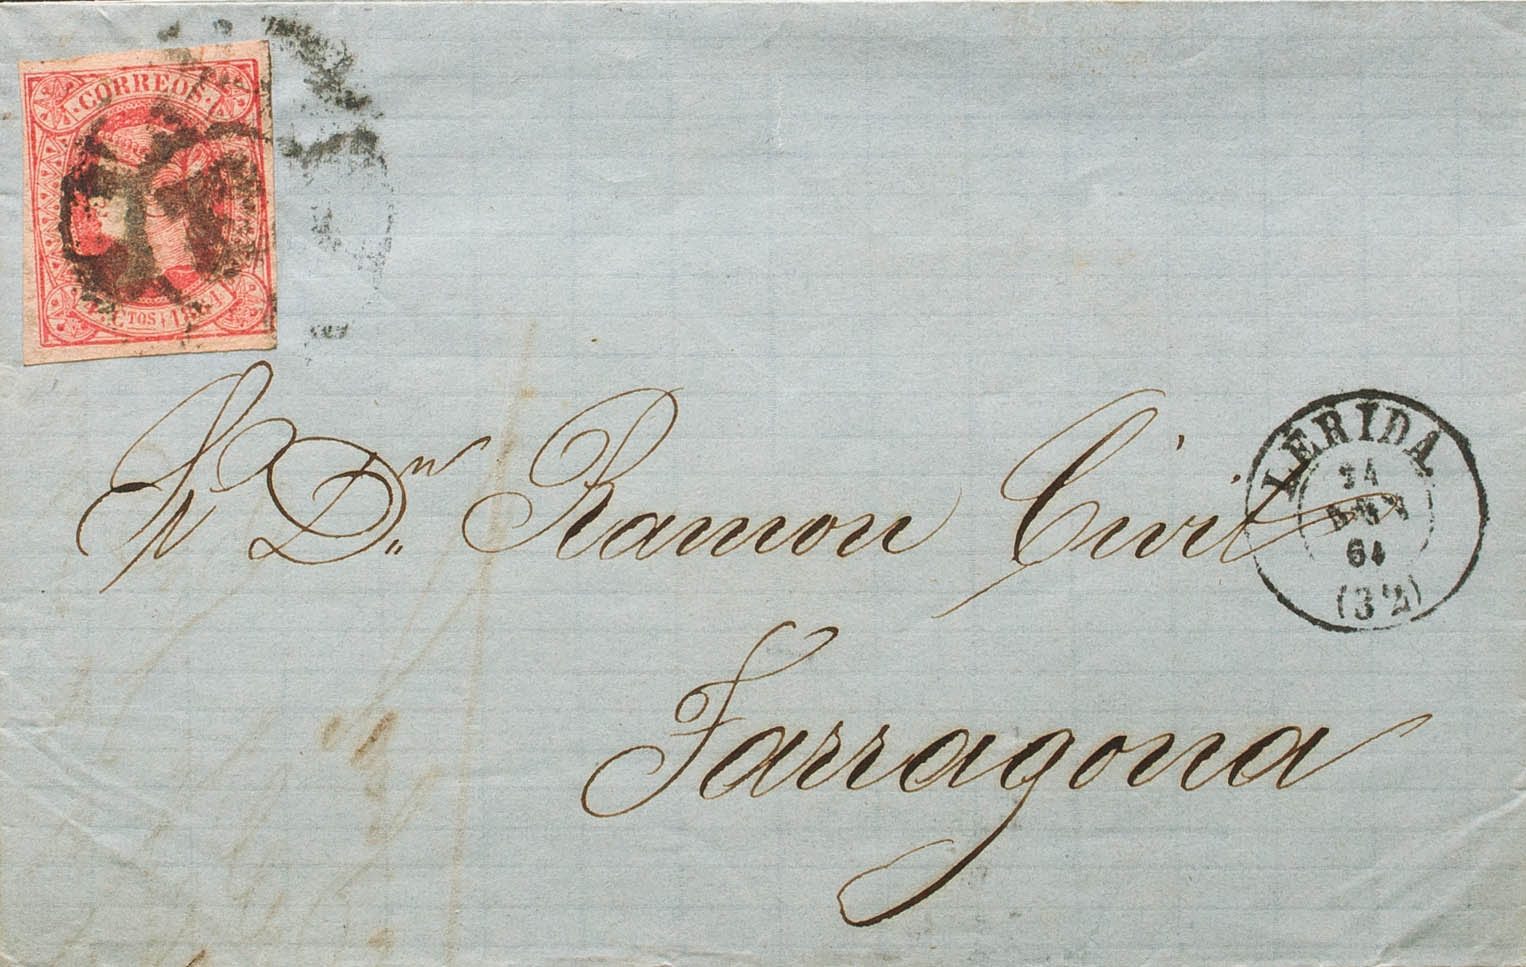 CORREOS
CTOS 1864
Sr. Dn. Ramon Civil
Tarragona
LERIDA
24
64
(32)